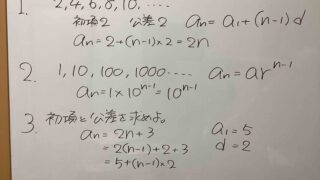 1. 2, 4, 6, 8, 10, ....
初項2 公差2 an = a1 + (n-1)d
an = 2+(n-1)×2 = 2n
2. 1, 10, 100, 1000.... an = ar^n-1
an = 1×10^n-1 = 10^n-1
3. 初項と公差を求めよ。
an = 2n+3 a1 = 5
= 2(n-1)+2+3 d = 2
= 5+(n-1)×2